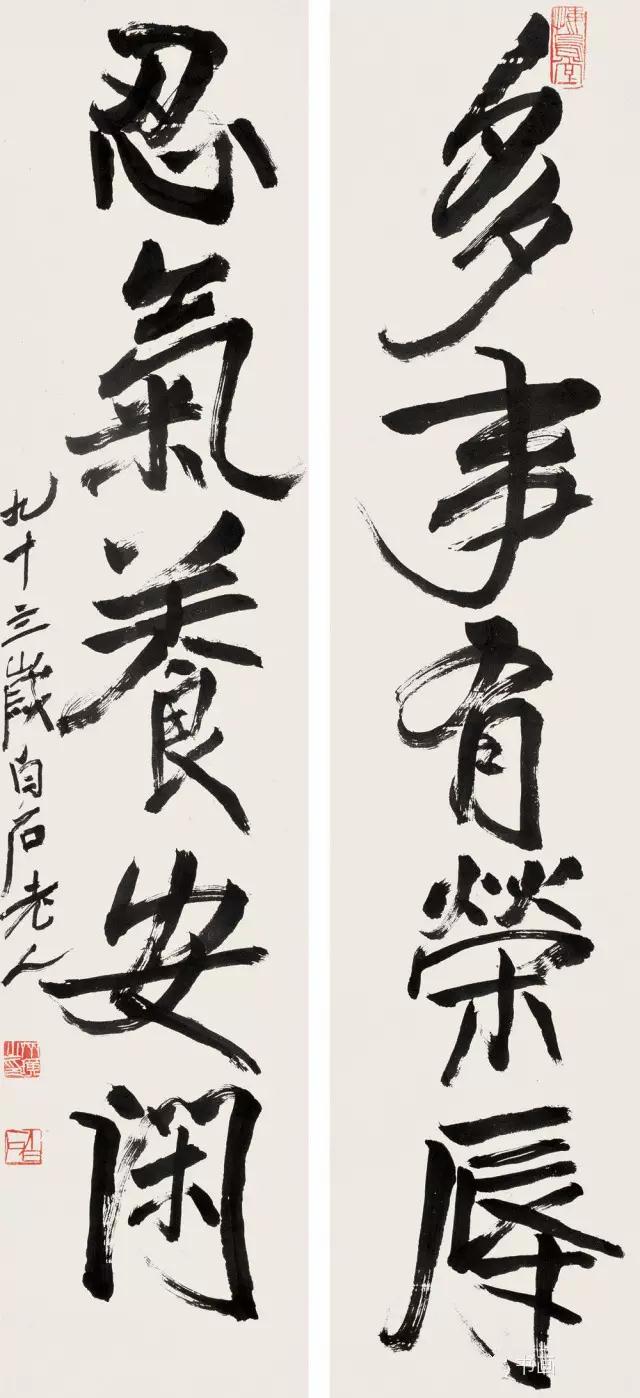 多事有榮辱
忍氣養安閑
九十三歲白石老人
书画